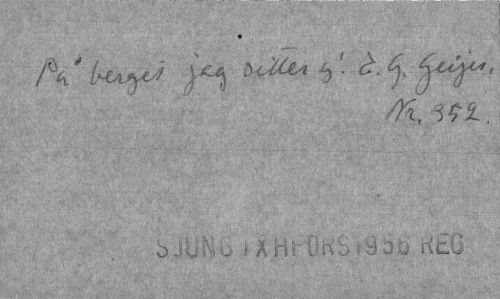 På berget jag sitter E. G. Geijer.
Nr. 352.
SJUNG! XHFORS 1956 REG